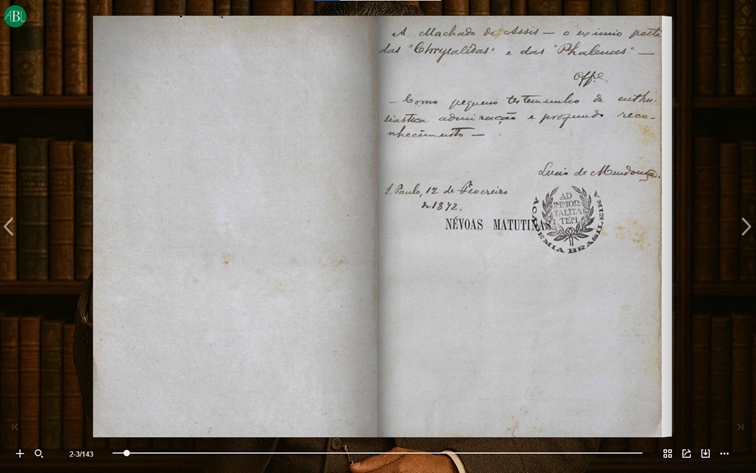 ABL
A Machado de Assis — o eximio poeta
das "Chrysalidas" e das "Phalenas" —
Off.e
— Como pequeno testemunho de enthu-
siastica admiração e profundo reco-
nhecimento —
Lucio de Mendonça.
S. Paulo, 12 de Fevereiro
de 1872.
NÉVOAS MATUTINAS
AD
IMMOR
TALITA
TEM
ACADEMIA BRASILEIRA
2-3/143